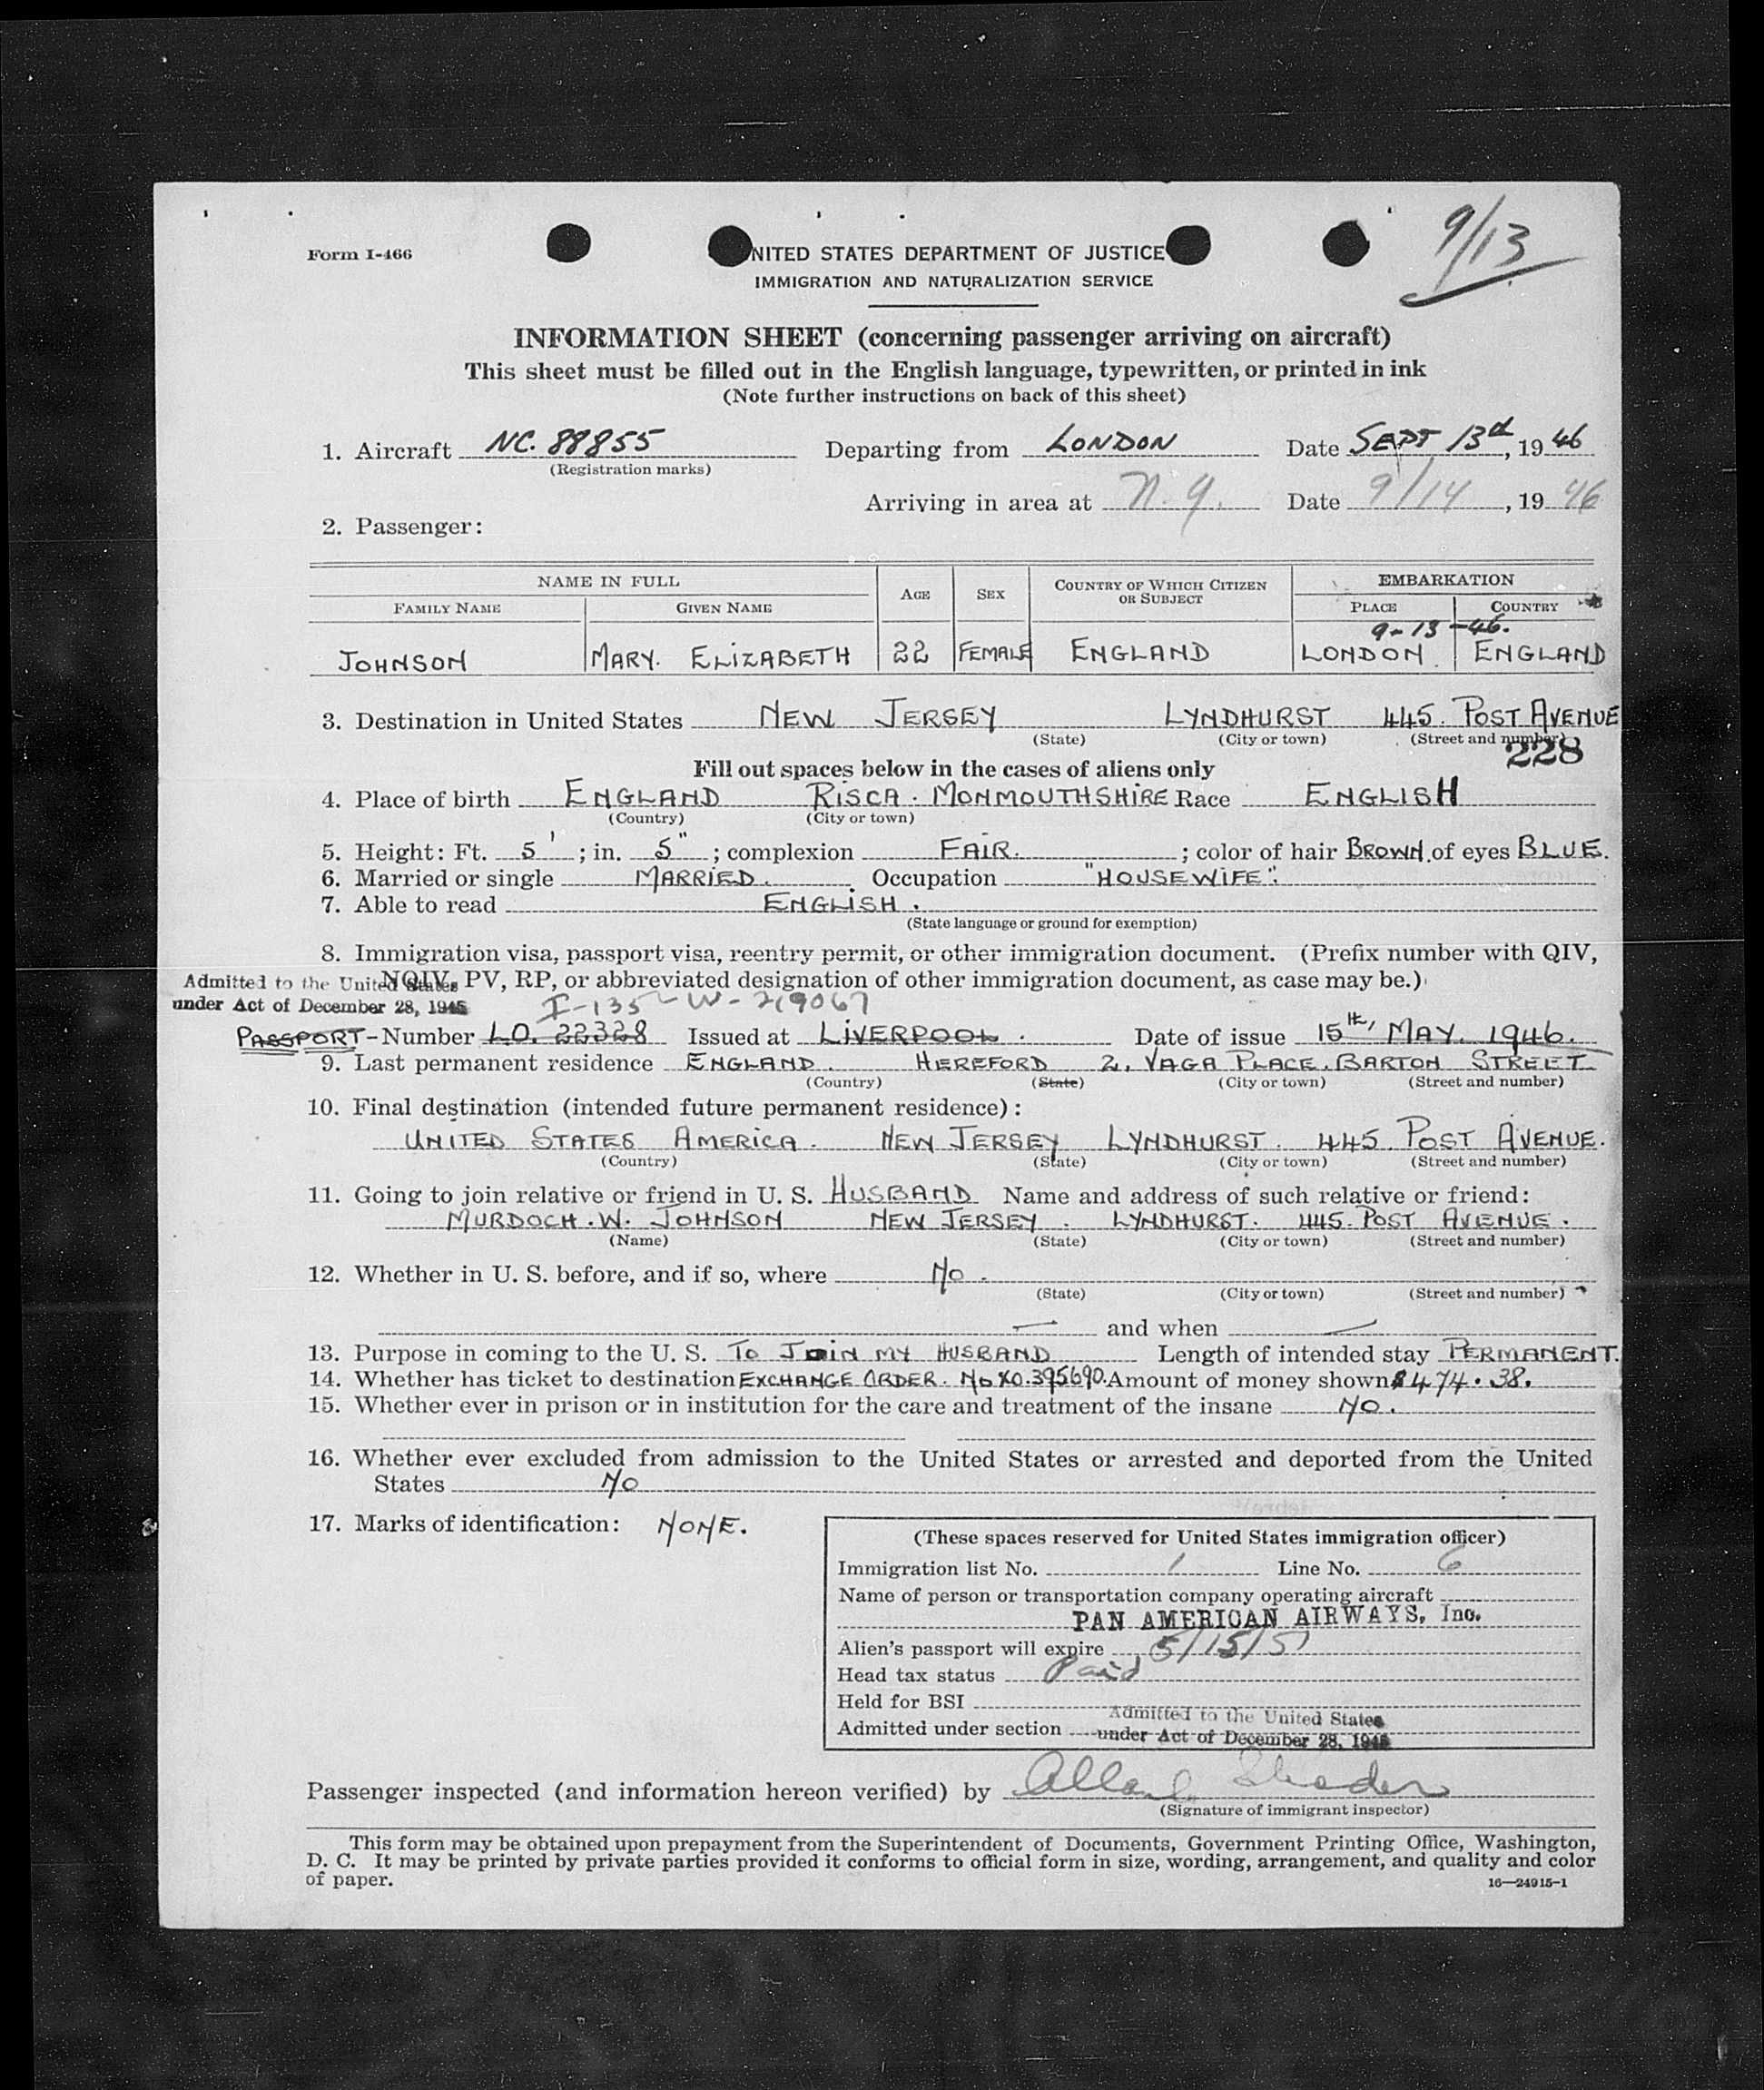 9/13
Form I-466
UNITED STATES DEPARTMENT OF JUSTICE
IMMIGRATION AND NATURALIZATION SERVICE
INFORMATION SHEET (concerning passenger arriving on aircraft)
This sheet must be filled out in the English language, typewritten, or printed in ink
(Note further instructions on back of this sheet)
1. Aircraft NC. 88855 Departing from LONDON Date SEPT 13th, 1946
(Registration marks)
Arriving in area at N.Y. Date 9/14, 1946
2. Passenger:
NAME IN FULL AGE SEX COUNTRY OF WHICH CITIZEN OR SUBJECT EMBARKATION
FAMILY NAME GIVEN NAME PLACE COUNTRY
9-13-46.
JOHNSON MARY. ELIZABETH 22 FEMALE ENGLAND LONDON. ENGLAND
3. Destination in United States NEW JERSEY LYNDHURST 445. POST AVENUE
(State) (City or town) (Street and number)
228
Fill out spaces below in the cases of aliens only
4. Place of birth ENGLAND RISCA. MONMOUTHSHIRE Race ENGLISH
(Country) (City or town)
5. Height: Ft. 5' ; in. 5" ; complexion FAIR. ; color of hair BROWN. of eyes BLUE.
6. Married or single MARRIED. Occupation "HOUSEWIFE".
7. Able to read ENGLISH.
(State language or ground for exemption)
8. Immigration visa, passport visa, reentry permit, or other immigration document. (Prefix number with QIV,
NQIV, PV, RP, or abbreviated designation of other immigration document, as case may be.)
Admitted to the United States
under Act of December 28, 1945
I-135-W-219067
PASSPORT-Number LO. 22328 Issued at LIVERPOOL. Date of issue 15th, MAY. 1946.
9. Last permanent residence ENGLAND. HEREFORD 2, VAGA PLACE. BARTON STREET
(Country) (State) (City or town) (Street and number)
10. Final destination (intended future permanent residence):
UNITED STATES AMERICA. NEW JERSEY LYNDHURST. 445. POST AVENUE.
(Country) (State) (City or town) (Street and number)
11. Going to join relative or friend in U. S. HUSBAND Name and address of such relative or friend:
MURDOCH. W. JOHNSON NEW JERSEY. LYNDHURST. 445. POST AVENUE.
(Name) (State) (City or town) (Street and number)
12. Whether in U. S. before, and if so, where NO.
(State) (City or town) (Street and number)
— and when —
13. Purpose in coming to the U. S. TO JOIN MY HUSBAND Length of intended stay PERMANENT.
14. Whether has ticket to destination EXCHANGE ORDER. NO XO.395690. Amount of money shown $474.38.
15. Whether ever in prison or in institution for the care and treatment of the insane NO.
16. Whether ever excluded from admission to the United States or arrested and deported from the United
States NO
17. Marks of identification: NONE.
(These spaces reserved for United States immigration officer)
Immigration list No. 1 Line No. 6
Name of person or transportation company operating aircraft
PAN AMERICAN AIRWAYS, Inc.
Alien's passport will expire 5/15/51
Head tax status Paid
Held for BSI
Admitted to the United States
Admitted under section under Act of December 28, 1945
Passenger inspected (and information hereon verified) by
(Signature of immigrant inspector)
This form may be obtained upon prepayment from the Superintendent of Documents, Government Printing Office, Washington,
D. C. It may be printed by private parties provided it conforms to official form in size, wording, arrangement, and quality and color
of paper.
16—24915-1